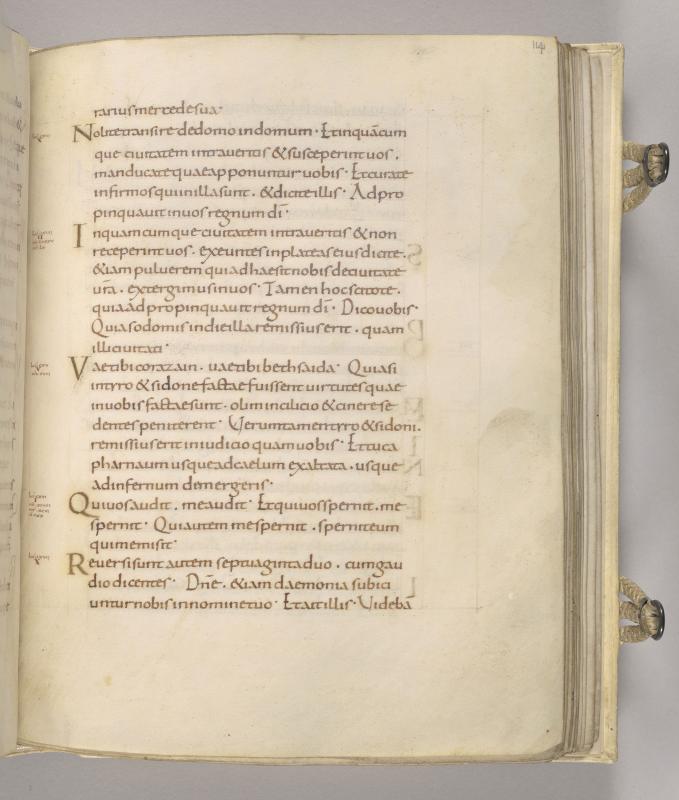 114
rarius mercede sua·
Nolite transire de domo in domum· Et inquācum
que ciuitatem intraueritis & susceperint uos.
manducate quae apponuntur uobis· Et curate
infirmos qui in illa sunt. & dicite illis· Adpro
pinquauit in uos regnum dī·
In quamcumque ciuitatem intraueritis & non
receperint uos. exeuntes in plateas eius dicite.
&iam puluerem qui adhaesit nobis de ciuitate
ura. extergimus in uos· Tamen hoc scitote.
quia adpropinquauit regnum dī· Dico uobis·
Quia sodomis in die illa remissius erit. quam
illi ciuitati·
Vae tibi corazain. uae tibi bethsaida· Quia si
in tyro & sidone factae fuissent uirtutes quae
in uobis factae sunt. olim in cilicio & cinere se
dentes peniterent· Uerumtamen tyro & sidoni.
remissius erit in iudicio quam uobis· Et tu ca
pharnaum usque ad caelum exaltata. usque
ad infernum demergeris·
Qui uos audit. me audit· Et qui uos spernit. me
spernit· Qui autem me spernit. spernit eum
qui me misit·
Reuersi sunt autem septuaginta duo. cum gau
dio dicentes· Dnē. &iam daemonia subici
untur nobis in nomine tuo· Et ait illis· Uidebā